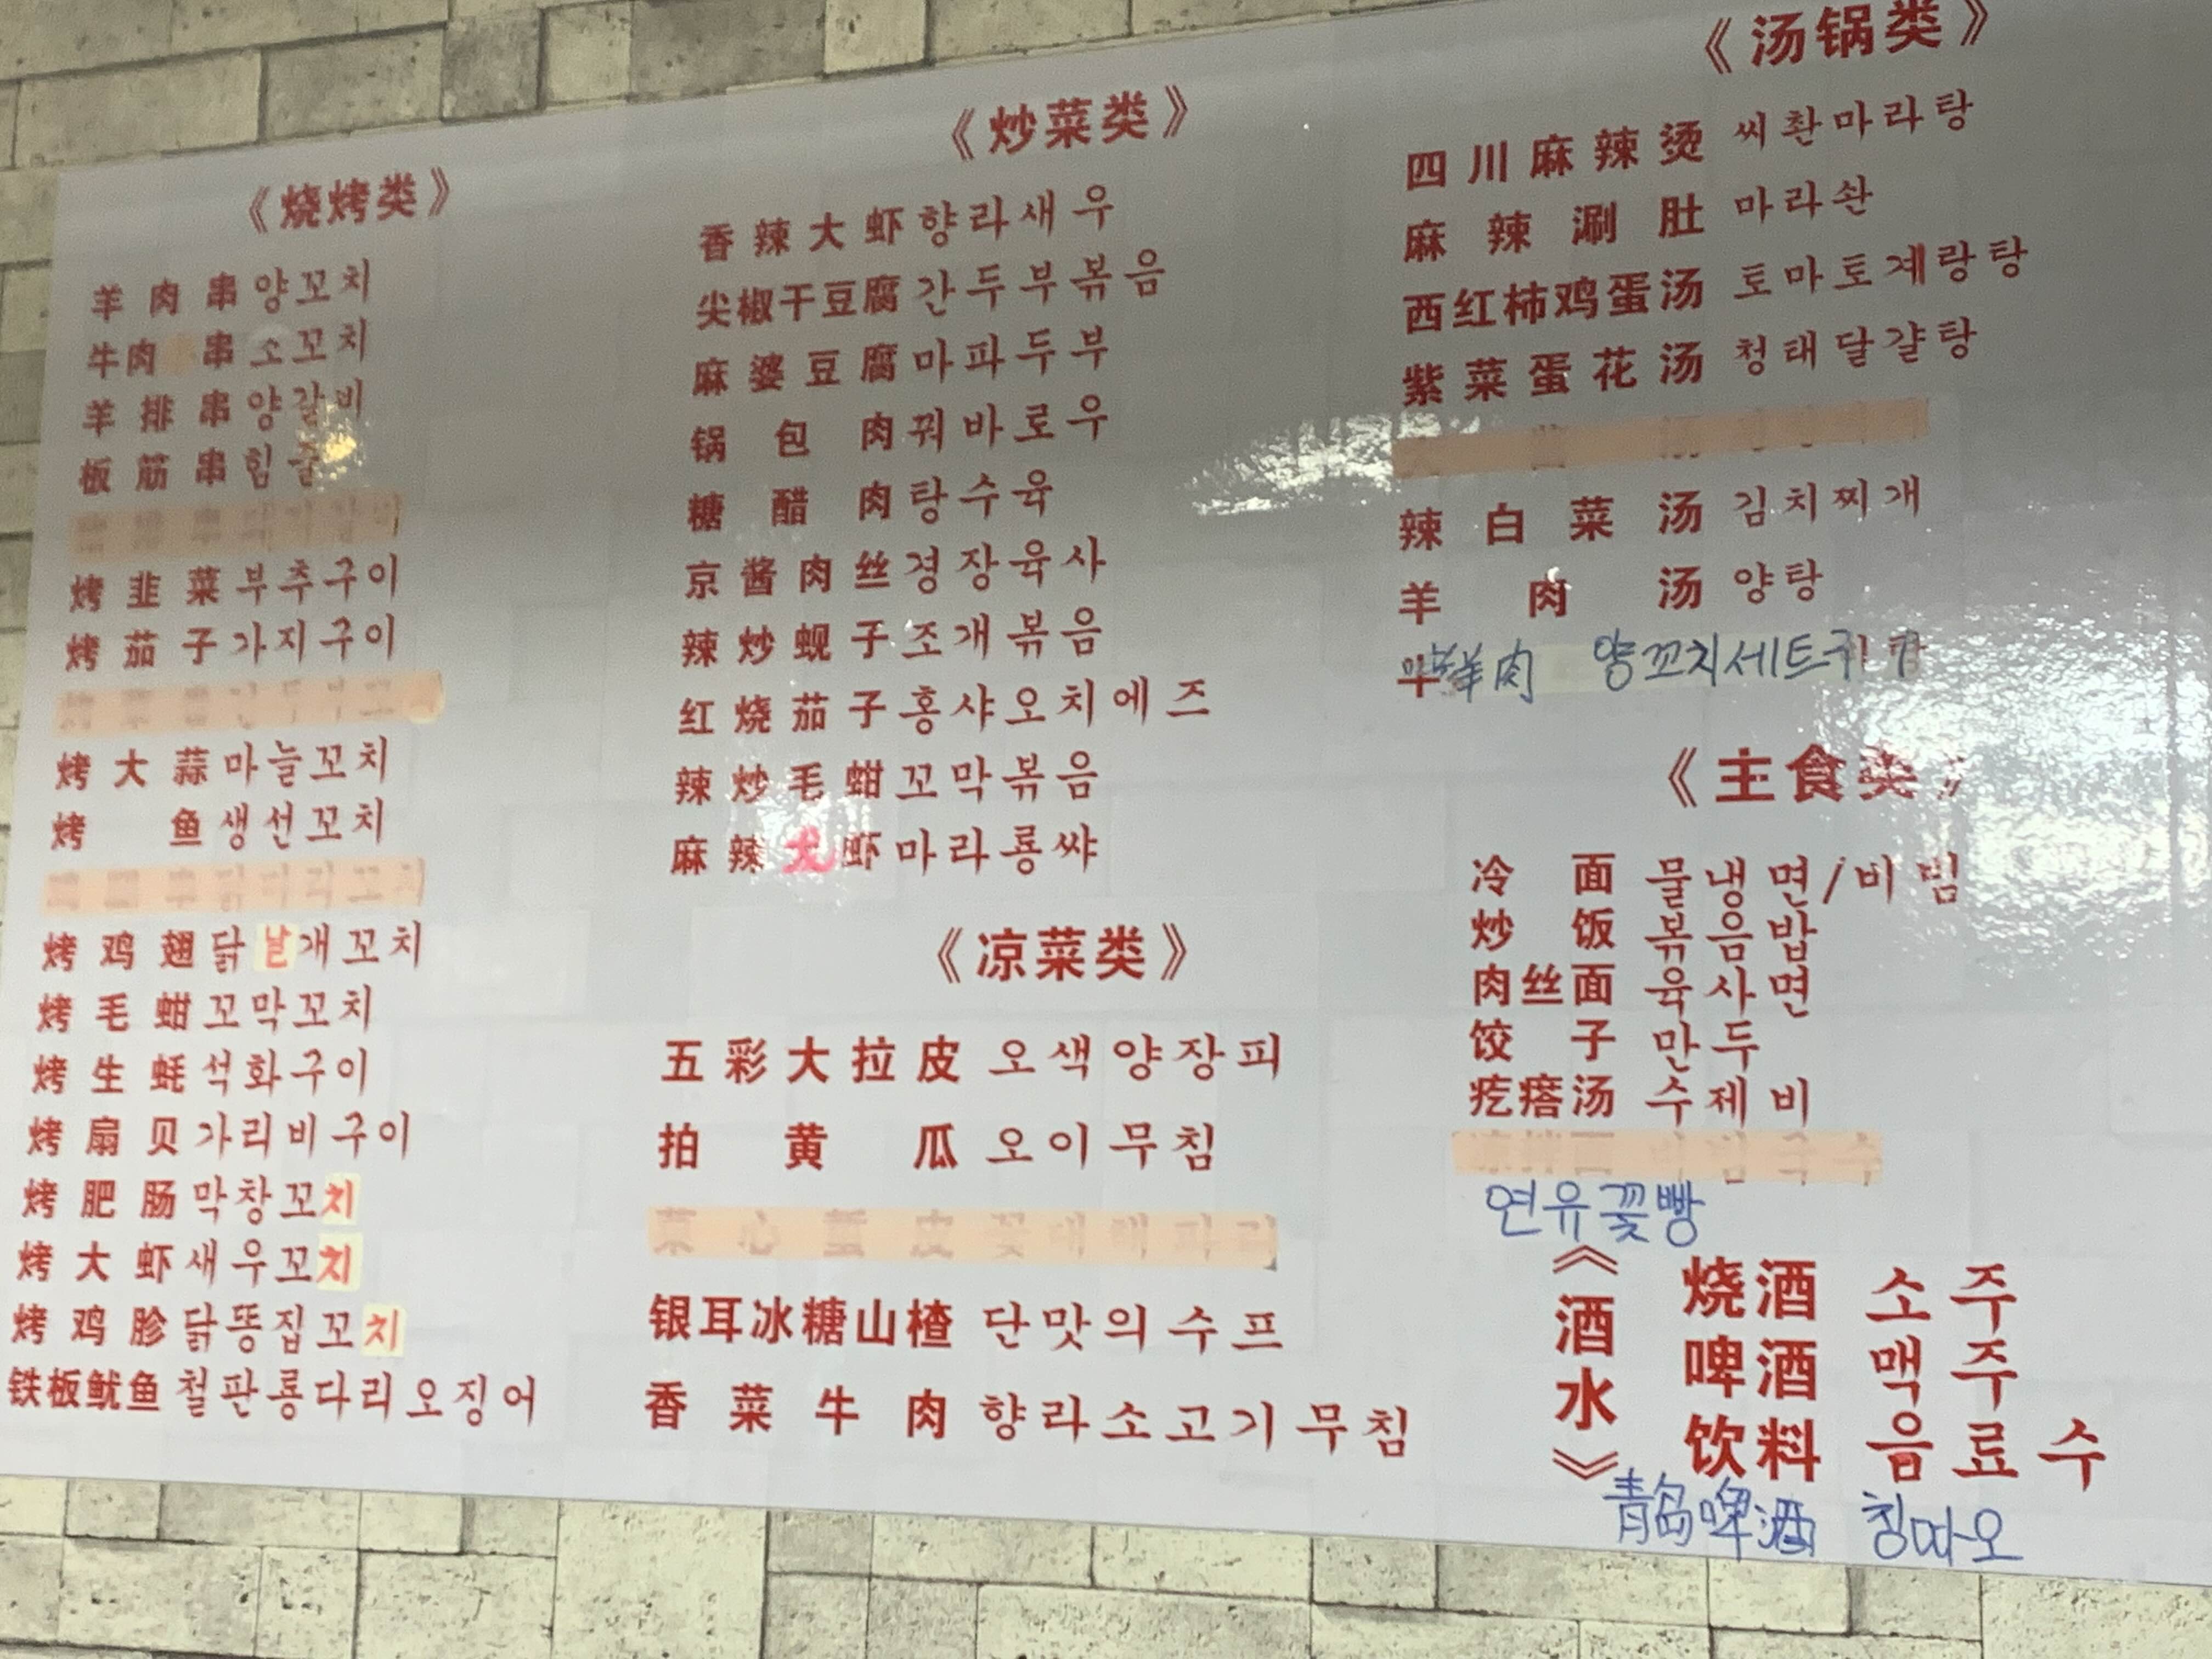 《烧烤类》
羊肉串 양꼬치
牛肉串 소꼬치
羊排串 양갈비
板筋串 힘줄
烤韭菜 부추구이
烤茄子 가지구이
烤大蒜 마늘꼬치
烤鱼 생선꼬치
烤鸡翅 닭날개꼬치
烤毛蚶 꼬막꼬치
烤生蚝 석화구이
烤扇贝 가리비구이
烤肥肠 막창꼬치
烤大虾 새우꼬치
烤鸡胗 닭똥집꼬치
铁板鱿鱼 철판룡다리오징어
《炒菜类》
香辣大虾 향라새우
尖椒干豆腐 간두부볶음
麻婆豆腐 마파두부
锅包肉 꿔바로우
糖醋肉 탕수육
京酱肉丝 경장육사
辣炒蚬子 조개볶음
红烧茄子 홍샤오치에즈
辣炒毛蚶 꼬막볶음
麻辣龙虾 마라룡쌰
《凉菜类》
五彩大拉皮 오색양장피
拍黄瓜 오이무침
菜心蜇皮 꽃대해파리
银耳冰糖山楂 단맛의수프
香菜牛肉 향라소고기무침
《汤锅类》
四川麻辣烫 씨촨마라탕
麻辣涮肚 마라솬
西红柿鸡蛋汤 토마토계랑탕
紫菜蛋花汤 청태달걀탕
辣白菜汤 김치찌개
羊肉汤 양탕
鲜肉 양꼬치세트
《主食类》
冷面 물냉면/비빔
炒饭 볶음밥
肉丝面 육사면
饺子 만두
疙瘩汤 수제비
연유꽃빵
《酒水》
烧酒 소주
啤酒 맥주
饮料 음료수
青岛啤酒 칭따오